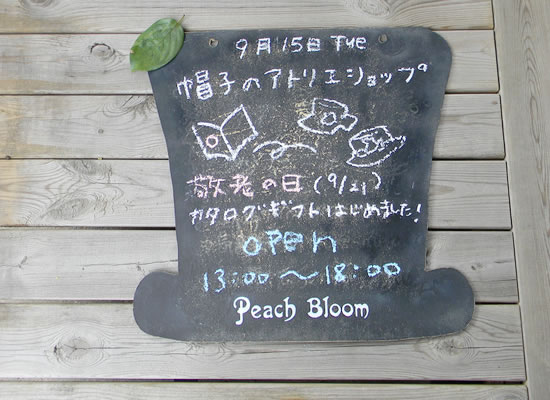 9月15日 Tue
帽子のアトリエショップ
敬老の日 (9/21)
カタログギフトはじめました!
open
13:00〜18:00
Peach Bloom